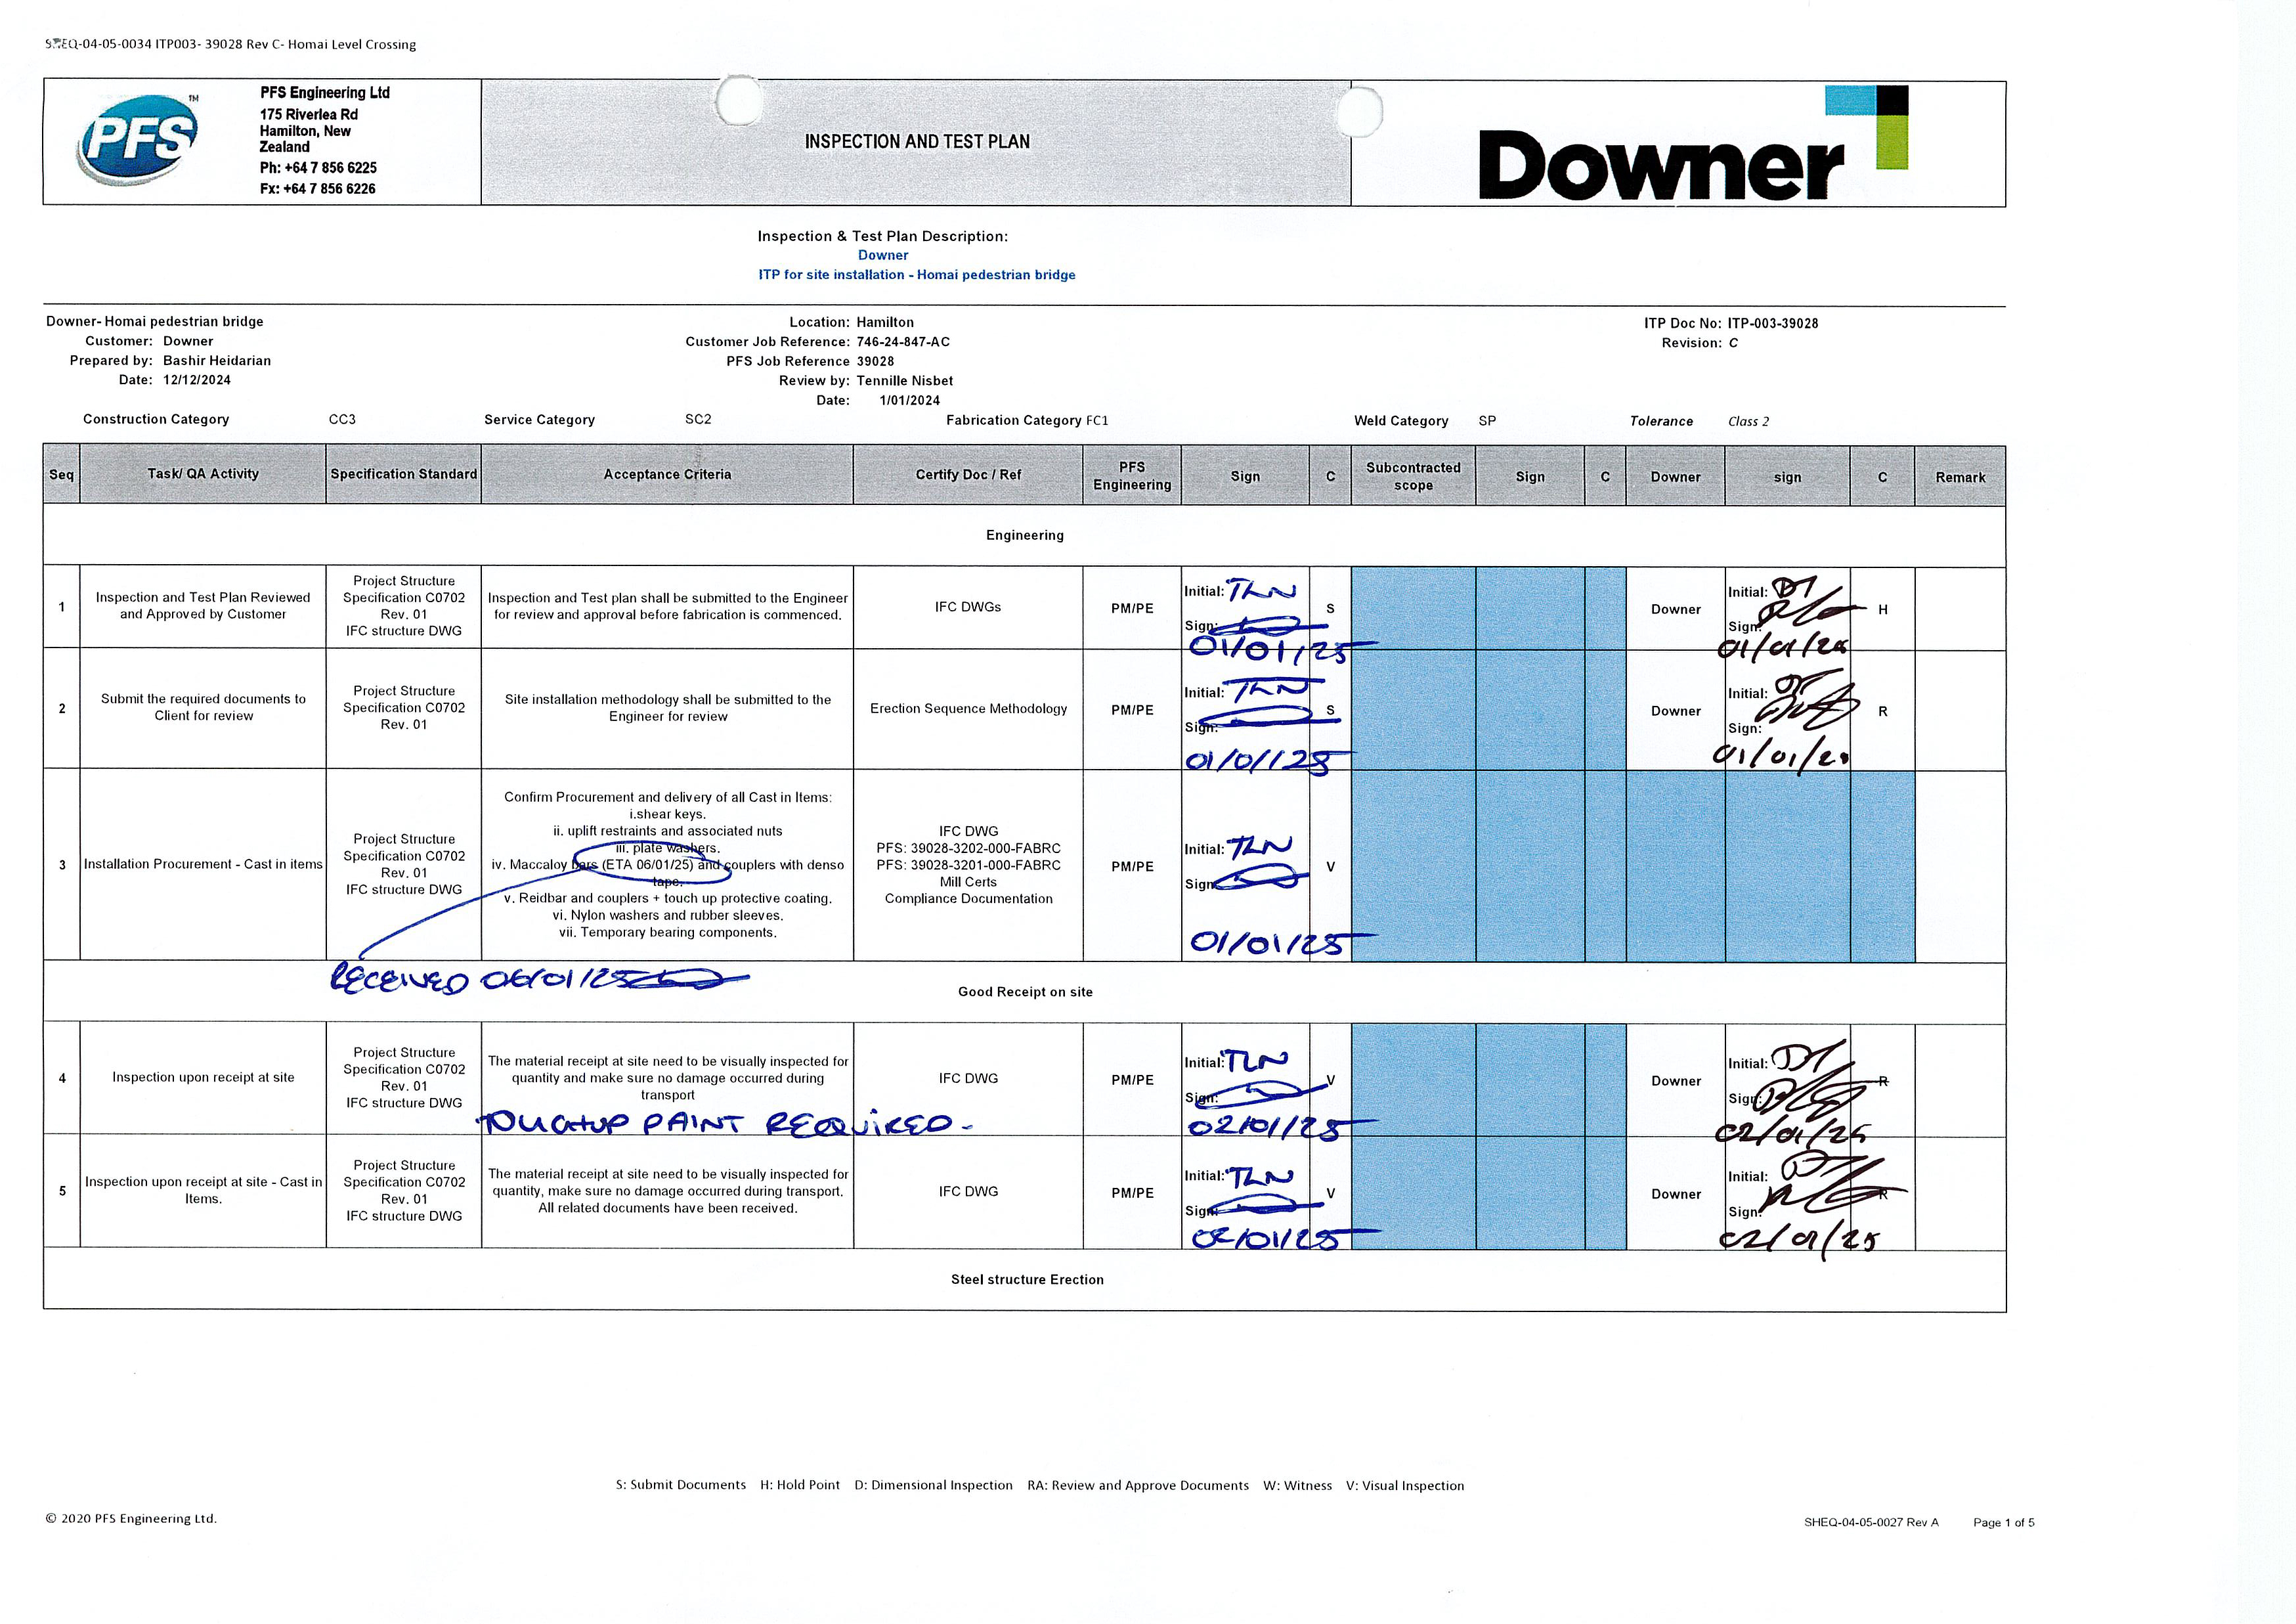 SHEQ-04-05-0034 ITP003- 39028 Rev C- Homai Level Crossing
PFS
TM
PFS Engineering Ltd
175 Riverlea Rd
Hamilton, New
Zealand
Ph: +64 7 856 6225
Fx: +64 7 856 6226
INSPECTION AND TEST PLAN
Downer
Inspection & Test Plan Description:
Downer
ITP for site installation - Homai pedestrian bridge
Downer- Homai pedestrian bridge
Customer: Downer
Prepared by: Bashir Heidarian
Date: 12/12/2024
Location: Hamilton
Customer Job Reference: 746-24-847-AC
PFS Job Reference 39028
Review by: Tennille Nisbet
Date: 1/01/2024
ITP Doc No: ITP-003-39028
Revision: C
Construction Category CC3 Service Category SC2 Fabrication Category FC1 Weld Category SP Tolerance Class 2
Seq Task/ QA Activity Specification Standard Acceptance Criteria Certify Doc / Ref PFS Engineering Sign C Subcontracted scope Sign C Downer sign C Remark
Engineering
1
Inspection and Test Plan Reviewed
and Approved by Customer
Project Structure
Specification C0702
Rev. 01
IFC structure DWG
Inspection and Test plan shall be submitted to the Engineer
for review and approval before fabrication is commenced.
IFC DWGs
PM/PE
Initial: TLN
Sign:
01/01/25
S
Downer
Initial: DT
Sign:
01/01/25
H
2
Submit the required documents to
Client for review
Project Structure
Specification C0702
Rev. 01
Site installation methodology shall be submitted to the
Engineer for review
Erection Sequence Methodology
PM/PE
Initial: TLN
Sign:
01/01/25
S
Downer
Initial:
Sign:
01/01/25
R
3
Installation Procurement - Cast in items
Project Structure
Specification C0702
Rev. 01
IFC structure DWG
Confirm Procurement and delivery of all Cast in Items:
i.shear keys.
ii. uplift restraints and associated nuts
iii. plate washers.
iv. Maccaloy bars (ETA 06/01/25) and couplers with denso
tape.
v. Reidbar and couplers + touch up protective coating.
vi. Nylon washers and rubber sleeves.
vii. Temporary bearing components.
IFC DWG
PFS: 39028-3202-000-FABRC
PFS: 39028-3201-000-FABRC
Mill Certs
Compliance Documentation
PM/PE
Initial: TLN
Sign
01/01/25
V
RECEIVED 06/01/25
Good Receipt on site
4
Inspection upon receipt at site
Project Structure
Specification C0702
Rev. 01
IFC structure DWG
The material receipt at site need to be visually inspected for
quantity and make sure no damage occurred during
transport
TOUCHUP PAINT REQUIRED -
IFC DWG
PM/PE
Initial: TLN
Sign:
02/01/25
V
Downer
Initial: DT
Sign:
02/01/25
R
5
Inspection upon receipt at site - Cast in
Items.
Project Structure
Specification C0702
Rev. 01
IFC structure DWG
The material receipt at site need to be visually inspected for
quantity, make sure no damage occurred during transport.
All related documents have been received.
IFC DWG
PM/PE
Initial: TLN
Sign:
02/01/25
V
Downer
Initial:
Sign:
02/01/25
R
Steel structure Erection
S: Submit Documents H: Hold Point D: Dimensional Inspection RA: Review and Approve Documents W: Witness V: Visual Inspection
© 2020 PFS Engineering Ltd.
SHEQ-04-05-0027 Rev A Page 1 of 5